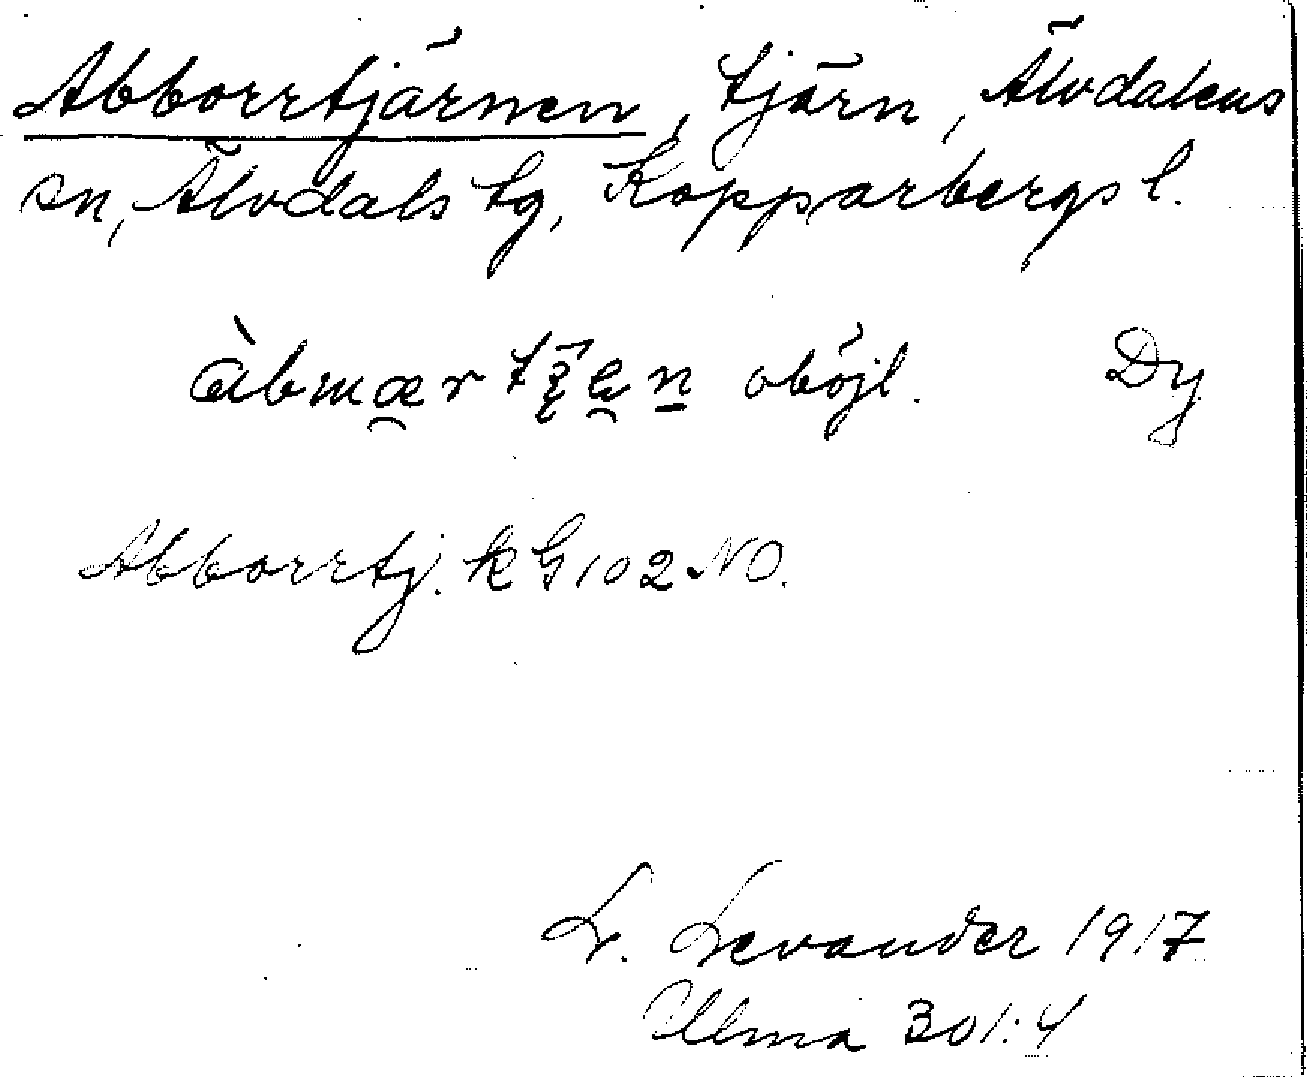 Abborrtjärnen, tjärn, Älvdalens
sn, Älvdals tg, Kopparbergs l.
oböjl. Dy
Abborrtj. k G 102 NO.
L. Levander 1917
Ulma 301:4